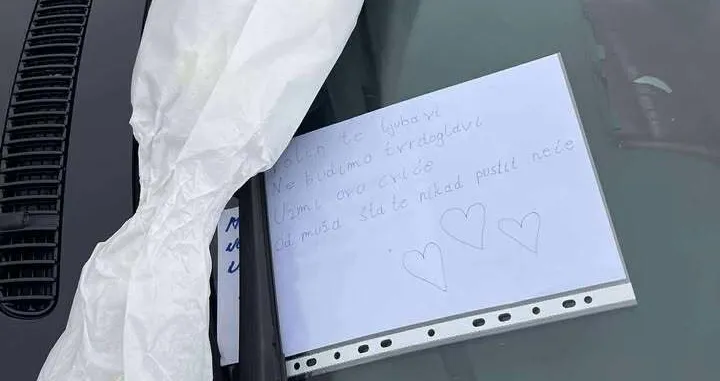 Volin te ljubavi
Ne budimo tvrdoglavi
Uzmi ovo cviće
Od muša šta te nikad pustit neće